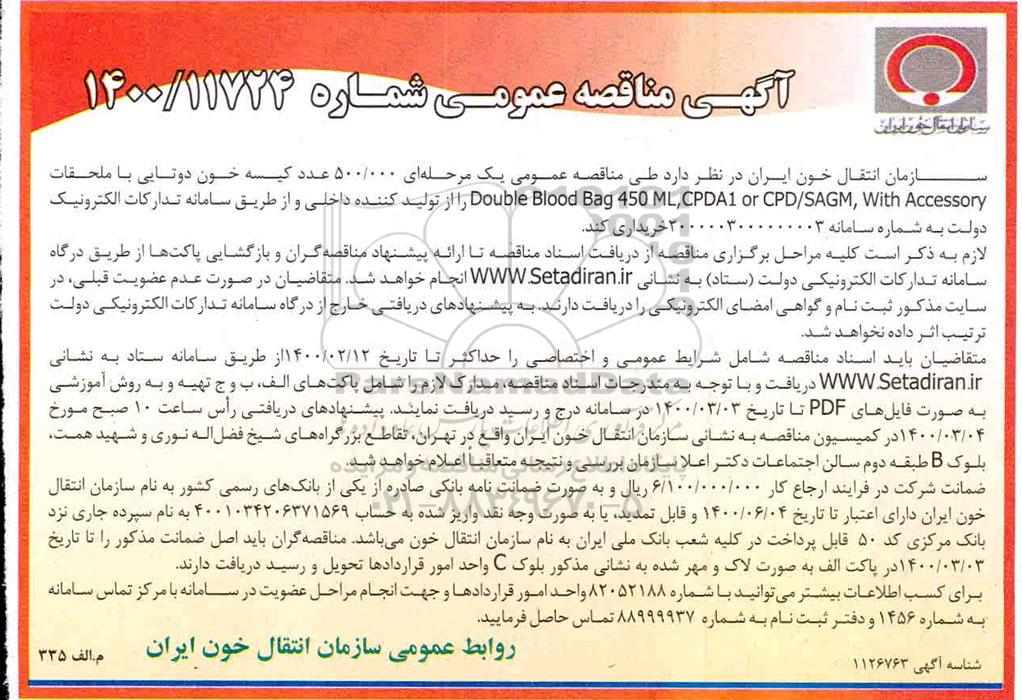 سازمان انتقال خون ایران
آگهی مناقصه عمومی شماره ۱۴۰۰/۱۱۷۲۴
سازمان انتقال خون ایران در نظر دارد طی مناقصه عمومی یک مرحله‌ای ۵۰۰/۰۰۰ عدد کیسه خون دوتایی با ملحقات
Double Blood Bag 450 ML,CPDA1 or CPD/SAGM, With Accessory را از تولید کننده داخلی و از طریق سامانه تدارکات الکترونیک
دولت به شماره سامانه ۲۰۰۰۰۰۳۰۰۰۰۰۰۰۰۳ خریداری کند.
لازم به ذکر است کلیه مراحل برگزاری مناقصه از دریافت اسناد مناقصه تا ارائه پیشنهاد مناقصه‌گران و بازگشایی پاکت‌ها از طریق درگاه
سامانه تدارکات الکترونیکی دولت (ستاد) به نشانی WWW.Setadiran.ir انجام خواهد شد. متقاضیان در صورت عدم عضویت قبلی، در
سایت مذکور ثبت نام و گواهی امضای الکترونیکی را دریافت دارند. به پیشنهادهای دریافتی خارج از درگاه سامانه تدارکات الکترونیکی دولت
ترتیب اثر داده نخواهد شد.
متقاضیان باید اسناد مناقصه شامل شرایط عمومی و اختصاصی را حداکثر تا تاریخ ۱۴۰۰/۰۲/۱۲ از طریق سامانه ستاد به نشانی
WWW.Setadiran.ir دریافت و با توجه به مندرجات اسناد مناقصه، مدارک لازم را شامل پاکت‌های الف، ب و ج تهیه و به روش آموزشی
به صورت فایل‌های PDF تا تاریخ ۱۴۰۰/۰۳/۰۳ در سامانه درج و رسید دریافت نمایند. پیشنهادهای دریافتی رأس ساعت ۱۰ صبح مورخ
۱۴۰۰/۰۳/۰۴ در کمیسیون مناقصه به نشانی سازمان انتقال خون ایران واقع در تهران، تقاطع بزرگراه‌های شیخ فضل‌اله نوری و شهید همت،
بلوک B طبقه دوم سالن اجتماعات دکتر اعلا سازمان بررسی و نتیجه متعاقباً اعلام خواهد شد.
ضمانت شرکت در فرایند ارجاع کار ۶/۱۰۰/۰۰۰/۰۰۰ ریال و به صورت ضمانت نامه بانکی صادره از یکی از بانک‌های رسمی کشور به نام سازمان انتقال
خون ایران دارای اعتبار تا تاریخ ۱۴۰۰/۰۶/۰۴ و قابل تمدید، یا به صورت وجه نقد واریز شده به حساب ۴۰۰۱۰۳۴۲۰۶۳۷۱۵۶۹ به نام سپرده جاری نزد
بانک مرکزی کد ۵۰ قابل پرداخت در کلیه شعب بانک ملی ایران به نام سازمان انتقال خون می‌باشد. مناقصه‌گران باید اصل ضمانت مذکور را تا تاریخ
۱۴۰۰/۰۳/۰۳ در پاکت الف به صورت لاک و مهر شده به نشانی مذکور بلوک C واحد امور قراردادها تحویل و رسید دریافت دارند.
برای کسب اطلاعات بیشتر می‌توانید با شماره ۸۲۰۵۲۱۸۸ واحد امور قراردادها و جهت انجام مراحل عضویت در سامانه با مرکز تماس سامانه
به شماره ۱۴۵۶ و دفتر ثبت نام به شماره ۸۸۹۹۹۹۳۷ تماس حاصل فرمایید.
روابط عمومی سازمان انتقال خون ایران
شناسه آگهی ۱۱۲۶۷۶۳
م.الف ۳۳۵
ParsNamadData
پایگاه اطلاع رسانی مناقصه و مزایده
۰۲۱-۸۸۳۴۹۶۷۰-۵